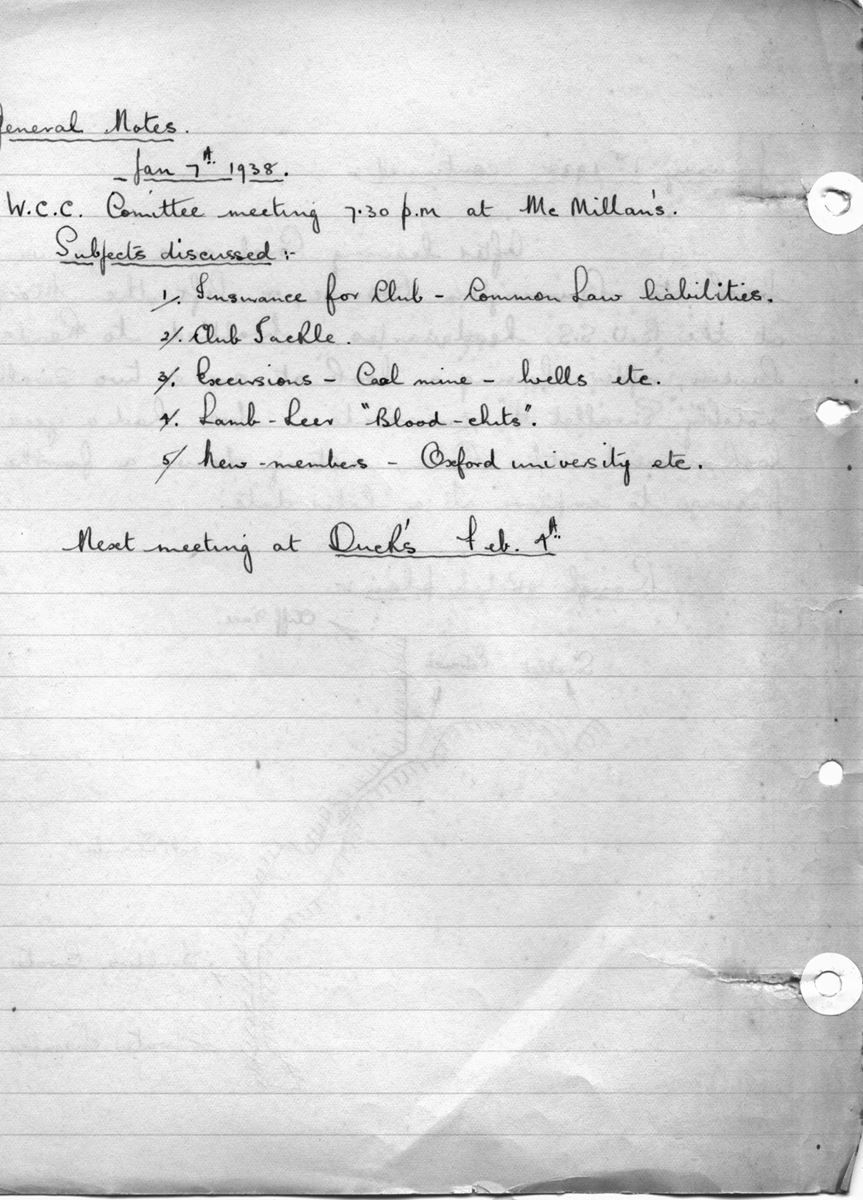 General Notes.
Jan 7th 1938.
W.C.C. Comittee meeting 7.30 p.m at Mc Millan's.
Subjects discussed :-
1/. Insurance for Club - Common Law liabilities.
2/. Club Tackle.
3/. Excursions - Coal mine - Wells etc.
4/. Lamb-Leer "Blood-chits".
5/ New-members - Oxford university etc.
Next meeting at Duck's Feb. 4th